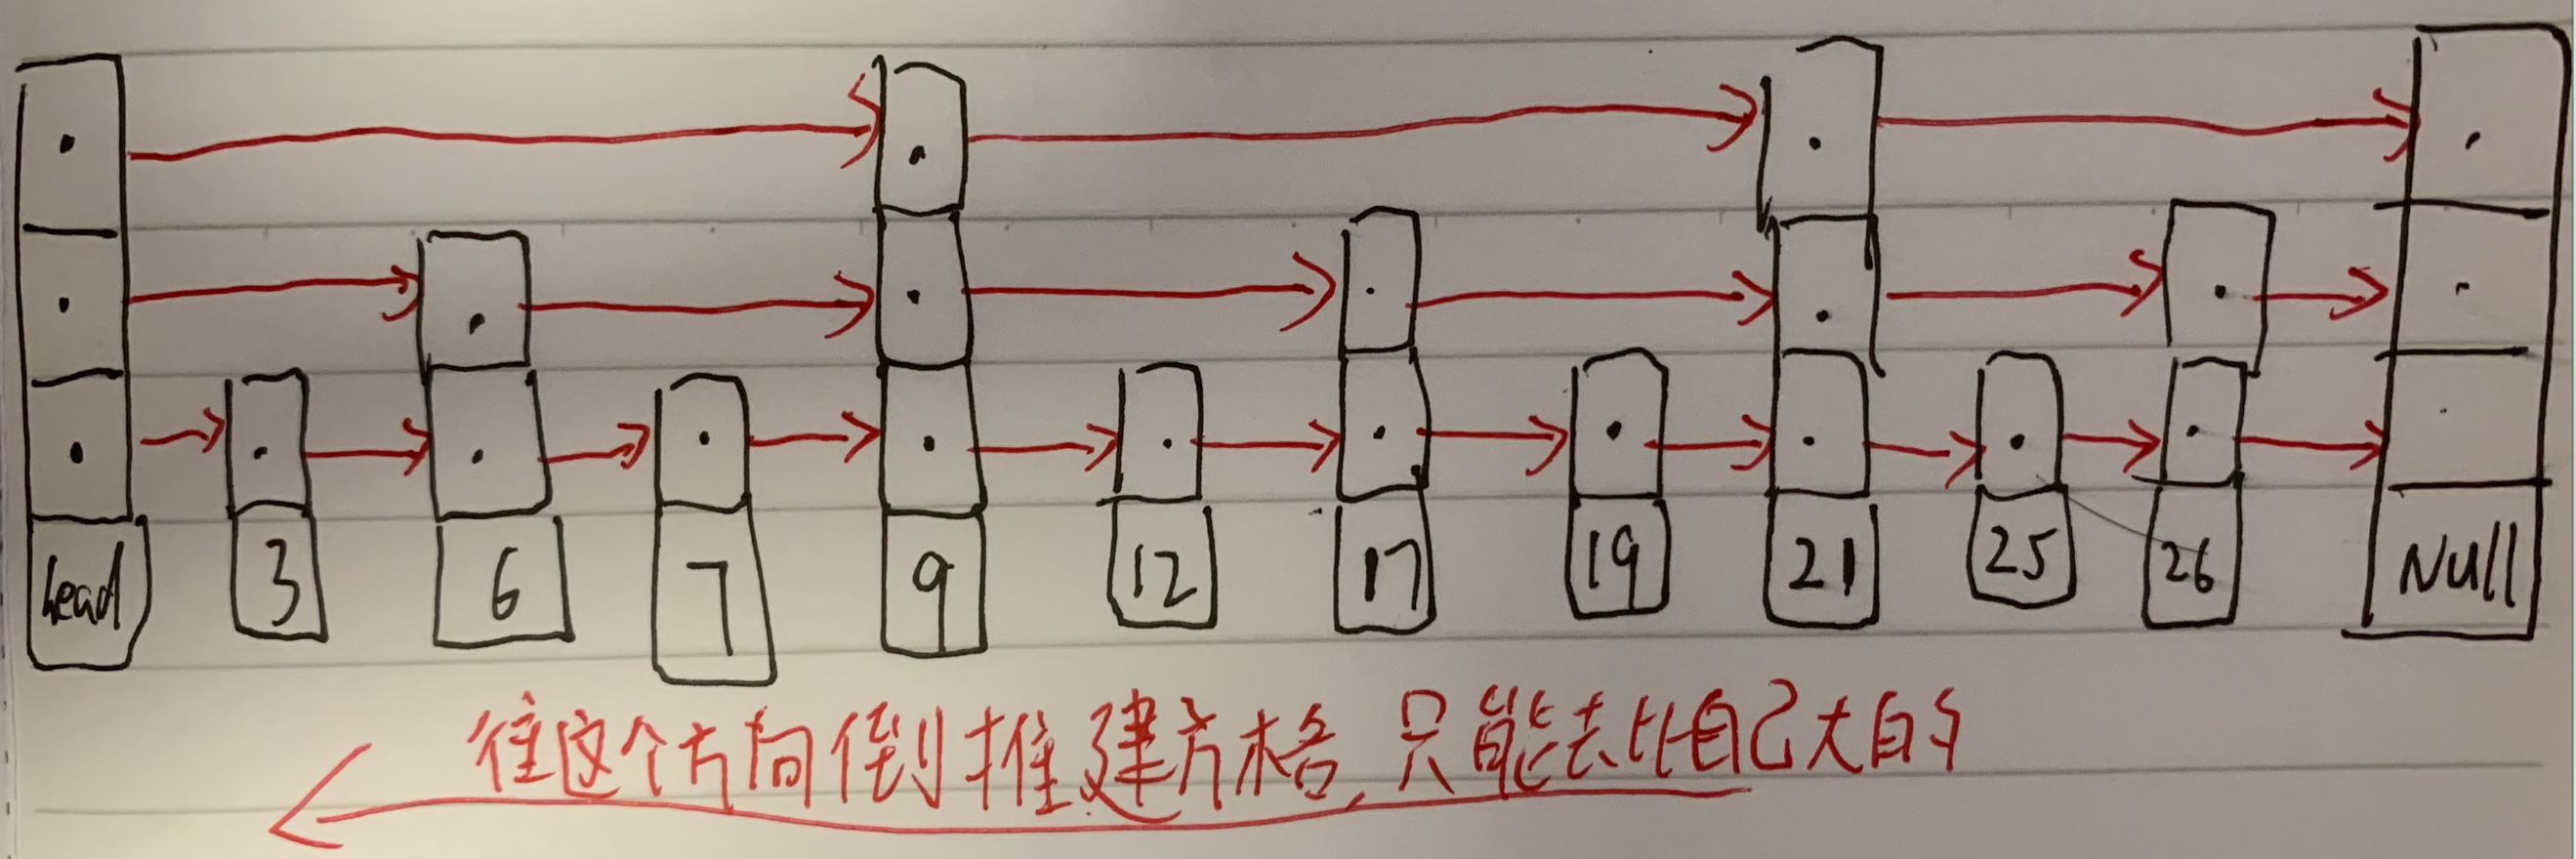 head 3 6 7 9 12 17 19 21 25 26 Null
往这个方向倒推建方格,只能去比自己大的